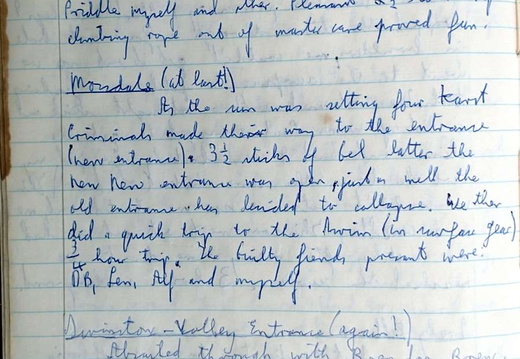 Priddle myself and other. Pleasant 2½
climbing rope out of master cave proved fun.
Morsdale (at last!)
As the sun was setting four karst
Criminals made their way to the entrance
(new entrance). 3½ sticks of Gel latter the
new new entrance was open, just as well the
old entrance has decided to collapse. We then
did a quick trip to the Swim (in surface gear)
¾ hour trip. The Guilty fiends present were.
DB, Len, Alf and myself.
Swinston - Valley Entrance (again!)
Abseiled through with